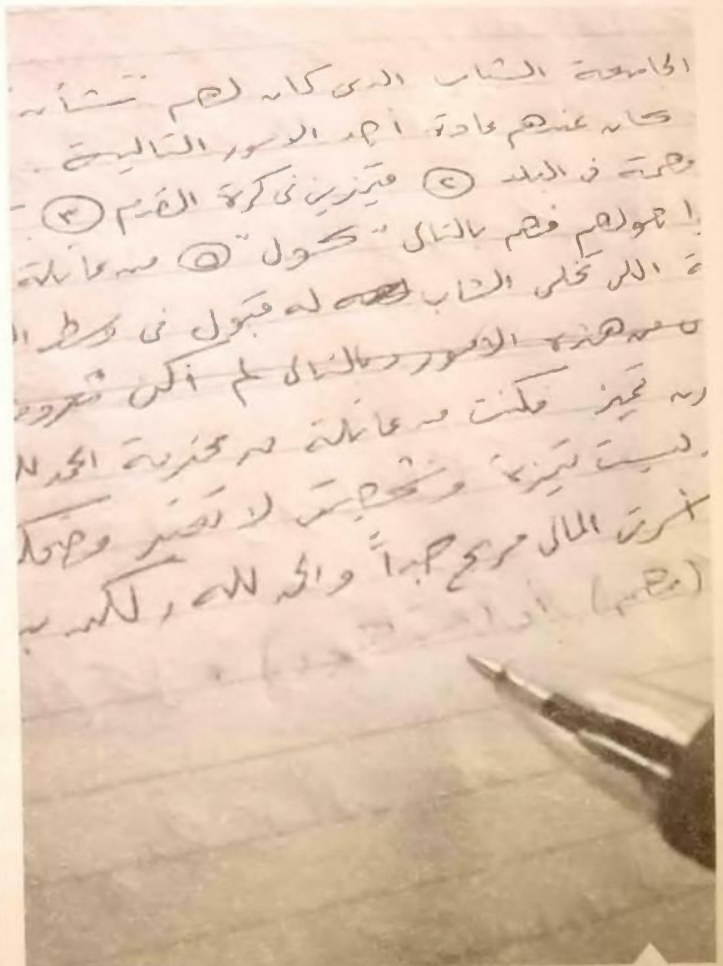 الجامعة الشاب الذى كان لهم شأن
كان عندهم عادة أحد الامور التالية
ومهمة فى البلد ② متميزين فى كرة القدم ③
حولهم فهم بالتالى "كول" ⑤ من عائلة
اللى تخلى الشاب له قبول فى وسط
من هذه الامور وبالتالى لم أكن معروف
تميز فكنت من عائلة محترمة الحمد لله
ليست متميزة وشخصيتى لا تعتبر
أسرتى المالى مريح جداً والحمد لله ولكن
(مهم)